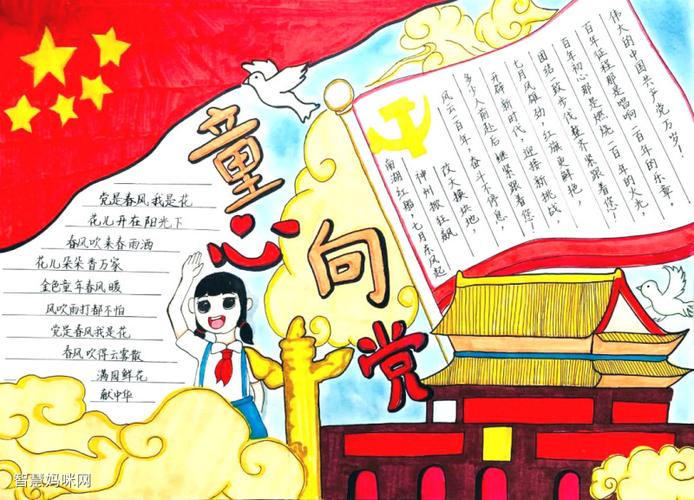 童心向党
党是春风我是花
花儿开在阳光下
春风吹来春雨洒
花儿朵朵香万家
金色童年春风暖
风吹雨打都不怕
党是春风我是花
春风吹得云雾散
满园鲜花
献中华
南湖红船,七月东风起
神州掀红飙
改天换地,
风云一百年,奋斗不停息,
多少人前赴后继紧跟着您!
开辟新时代,迎接新挑战,
七月风雄劲,红旗更鲜艳,
团结一致步伐整齐紧跟着您!
百年初心那是燃烧一百年的火光,
百年征程那是唱响一百年的乐章
伟大的中国共产党万岁!
智慧妈咪网